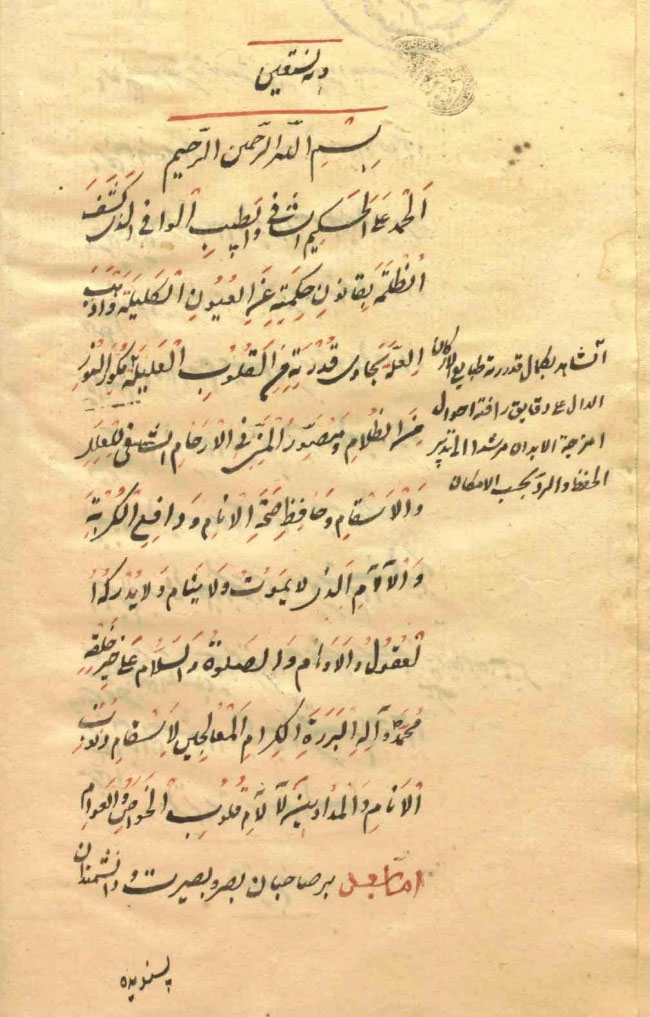 وبه نستعین
بِسْمِ اللّهِ الرَّحْمنِ الرَّحِیم
اَلحَمْدُ عَلَی الحَکیمِ الشافی وَالطَبیبِ الوافی الذی کَشَفَ
الظُلْمَةَ بِقانونِ حِکْمَتِهِ عَنِ العُیُونِ الکَلیلَةِ وَاَذهَبَ
العِلَّةَ بِحاوی قُدْرَتِهِ عَنِ القُلُوبِ العَلیلَةِ مُکَوِّرِ النُورِ
عَنِ الظَلامِ وَ مُصَوِّرِ فی الاَرحامِ الشافی لِلعِلَلِ
وَالاَسقامِ وَحافِظِ صِحَّةِ الاَنامِ وَدافِعِ الکُرْبَةِ
وَالآلامِ اَلذی لایَمُوتُ وَلایَنام وَلایُدْرِکُهُ ا
لعُقُولُ وَالاَوهام وَالصَلوةُ وَالسَلامُ عَلی خَیرِ خَلقِهِ
مُحَمَّدٍ وَآلِهِ البَرَرَةِ الکِرامِ المُعالِجینَ لِاَسقامِ
الاَنامِ وَالمُداوینَ لِآلامِ قُلُوبِ الخَواصِ وَالعَوام
اما بعد بر صاحبان بصر و بصیرت و دانشمندان
پسندیده
الشاهد بکمال قدرته طبایع الارکان
الدال علی دقایق رافته احوال
امزجة الابدان مرشدا الی تدبیر
الحفظ والرد بحسب الامکان